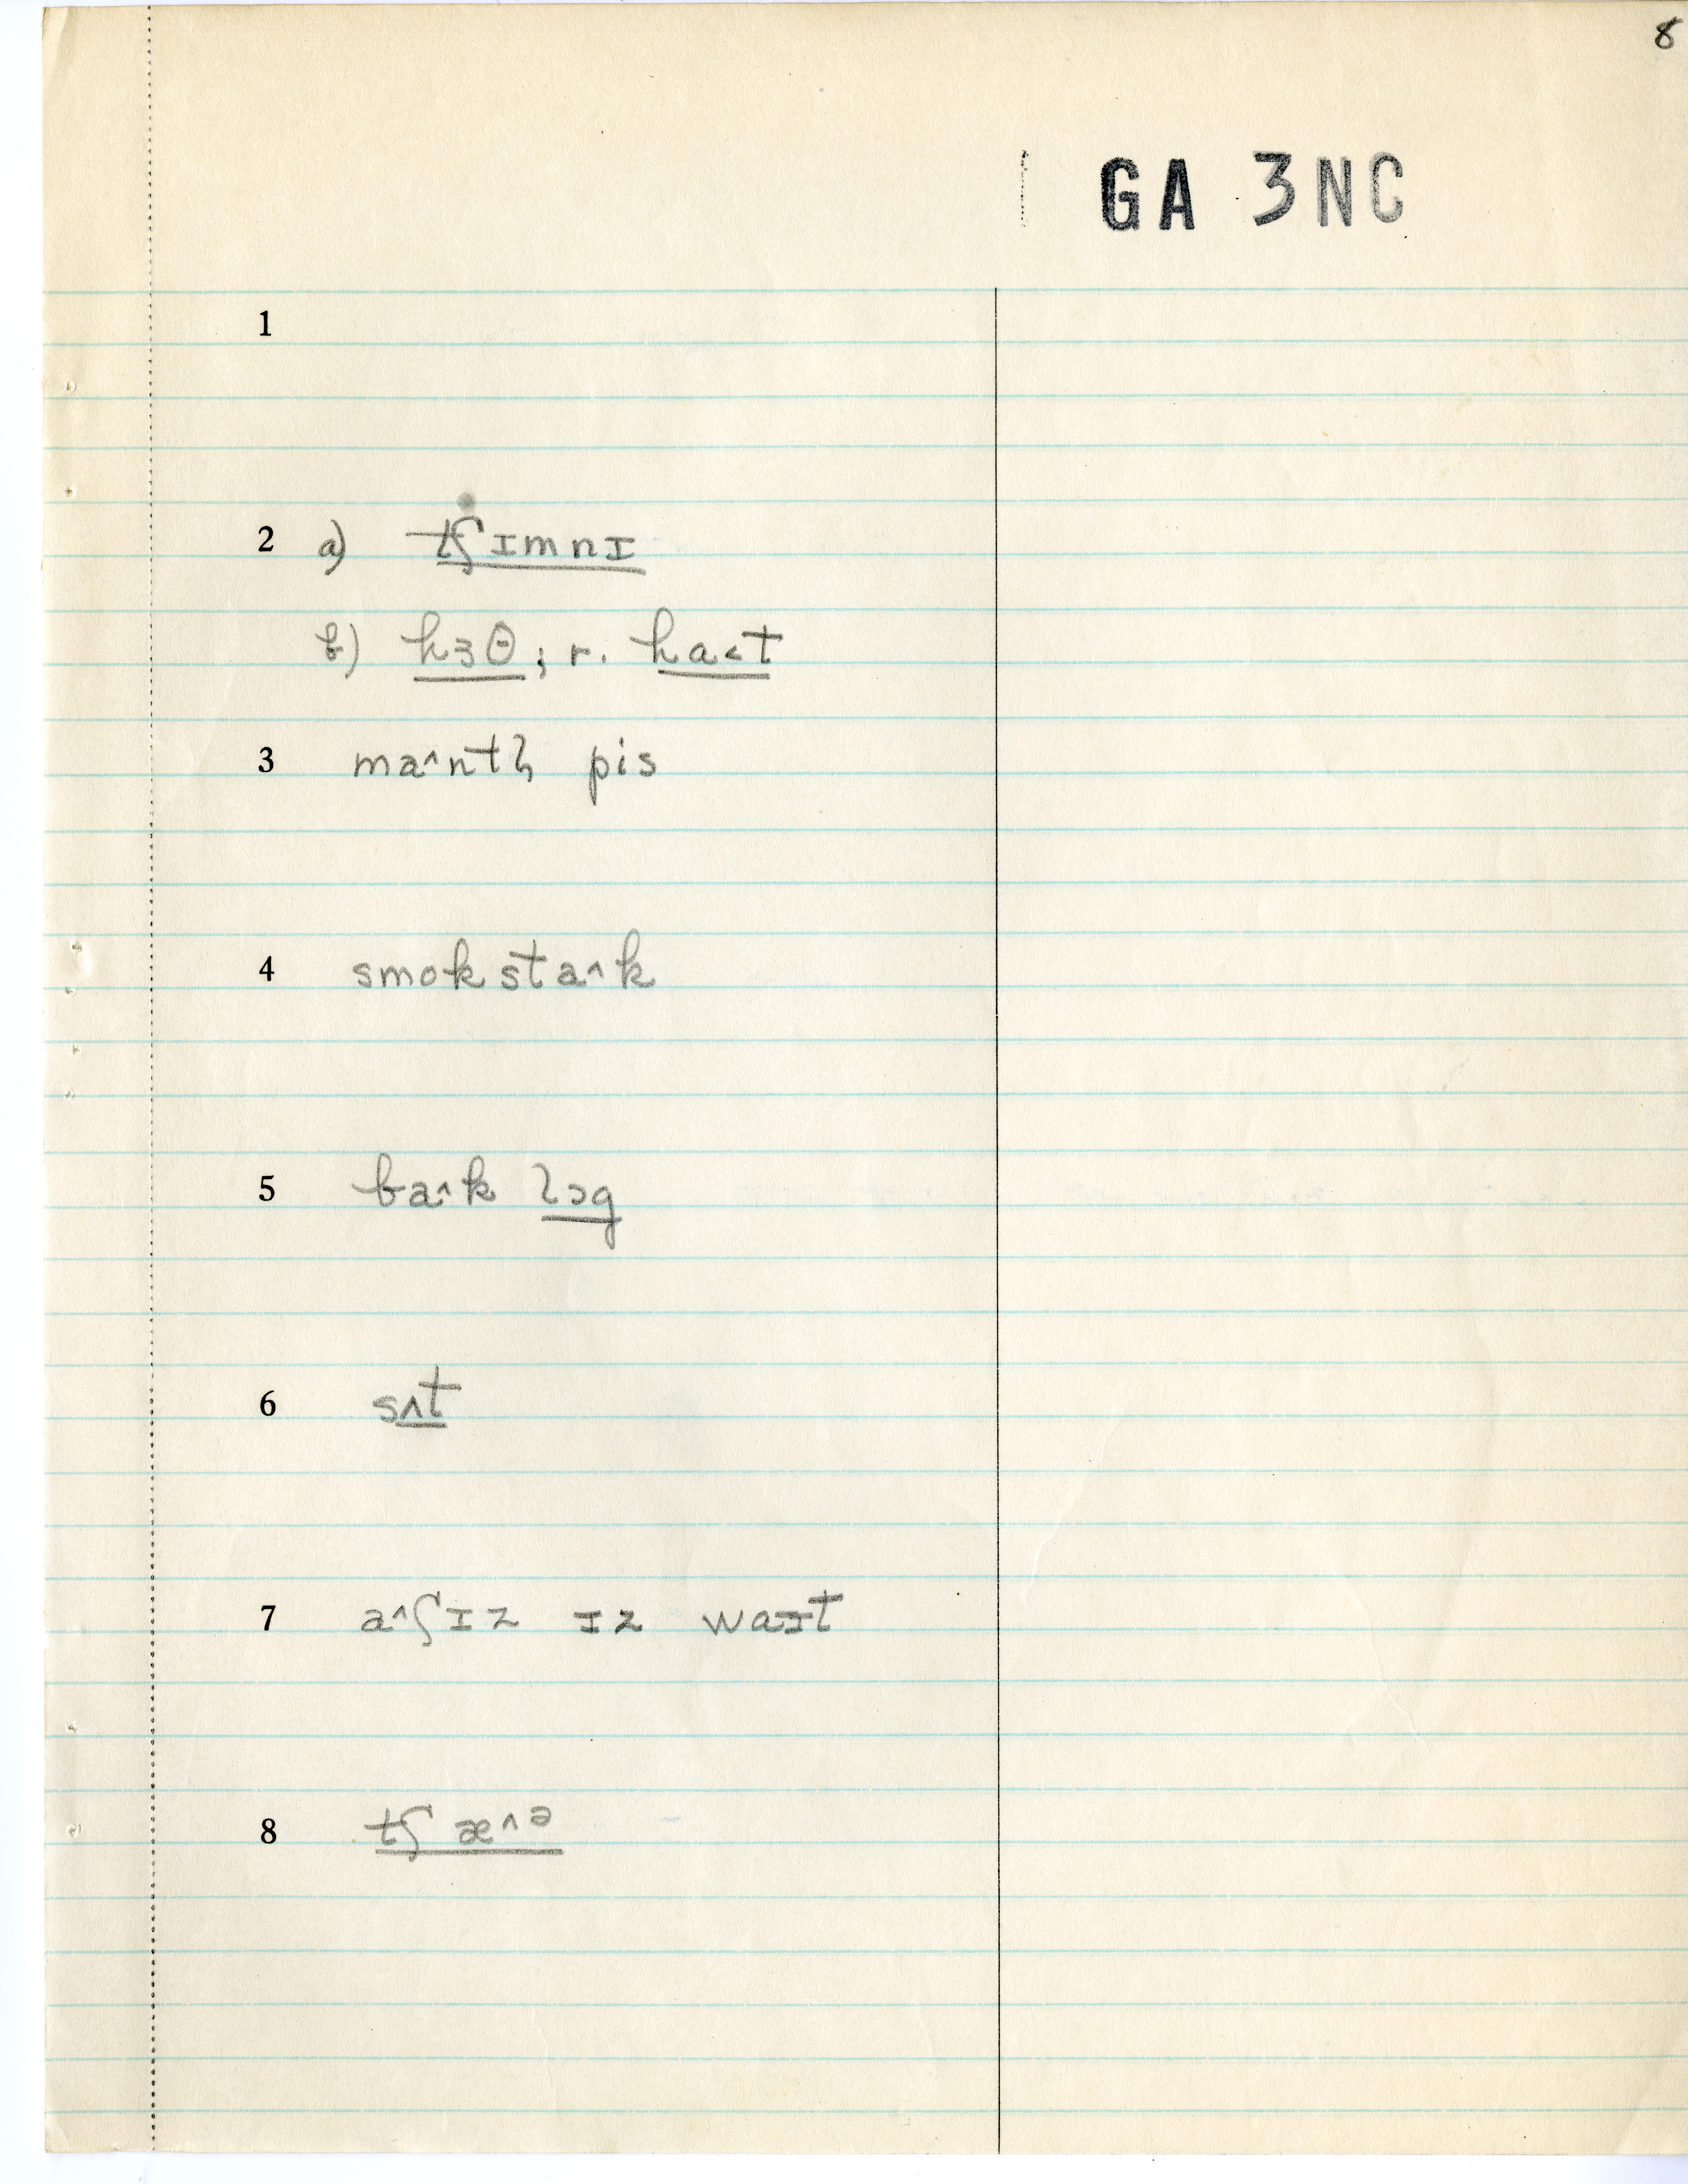 8
GA 3NC
1
2 a) tʃɪmnɪ
b) hɜθ; r. ha˂t
3 ma˄ntḷ pis
4 smok sta˄k
5 ba˄k lɔg
6 sʌt
7 a˄ʃɪz ɪz waɪt
8 tʃæ˄ᵊ